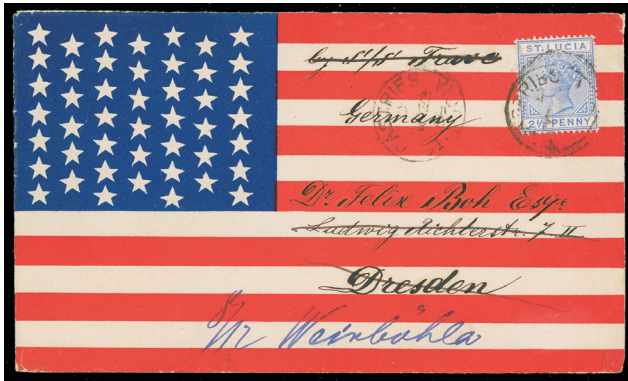 by S/S Trave
ST. LUCIA
2½ PENNY
CASTRIES
Germany
Dr. Felix Boh Esqr
Ludwig Richterstr. 7 II
Dresden
Weinböhla